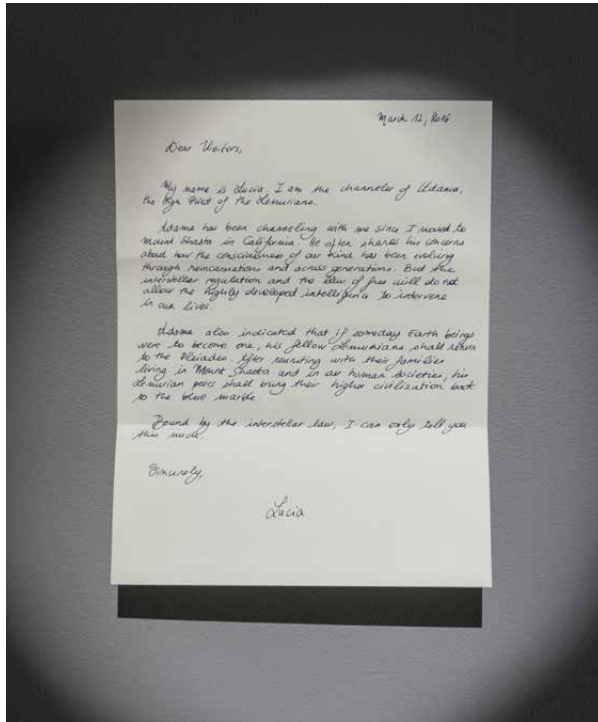 March 12, 2016
Dear Visitors,
My name is Lucia, I am the channeler of Adama,
the High Priest of the Lemurians.
Adama has been channeling with me since I moved to
Mount Shasta in California. He often shares his concerns
about how the consciousness of our kind has been evolving
through reincarnations and across generations. But the
interstellar regulation and the law of free will do not
allow the highly developed intelligence to intervene
in our lives.
Adama also indicated that if someday Earth beings
were to become one, his fellow Lemurians shall return
to the Pleiades. After reuniting with their families
living in Mount Shasta and in our human societies, his
Lemurian peers shall bring their higher civilization back
to the blue marble.
Bound by the interstellar law, I can only tell you
this much.
Sincerely,
Lucia